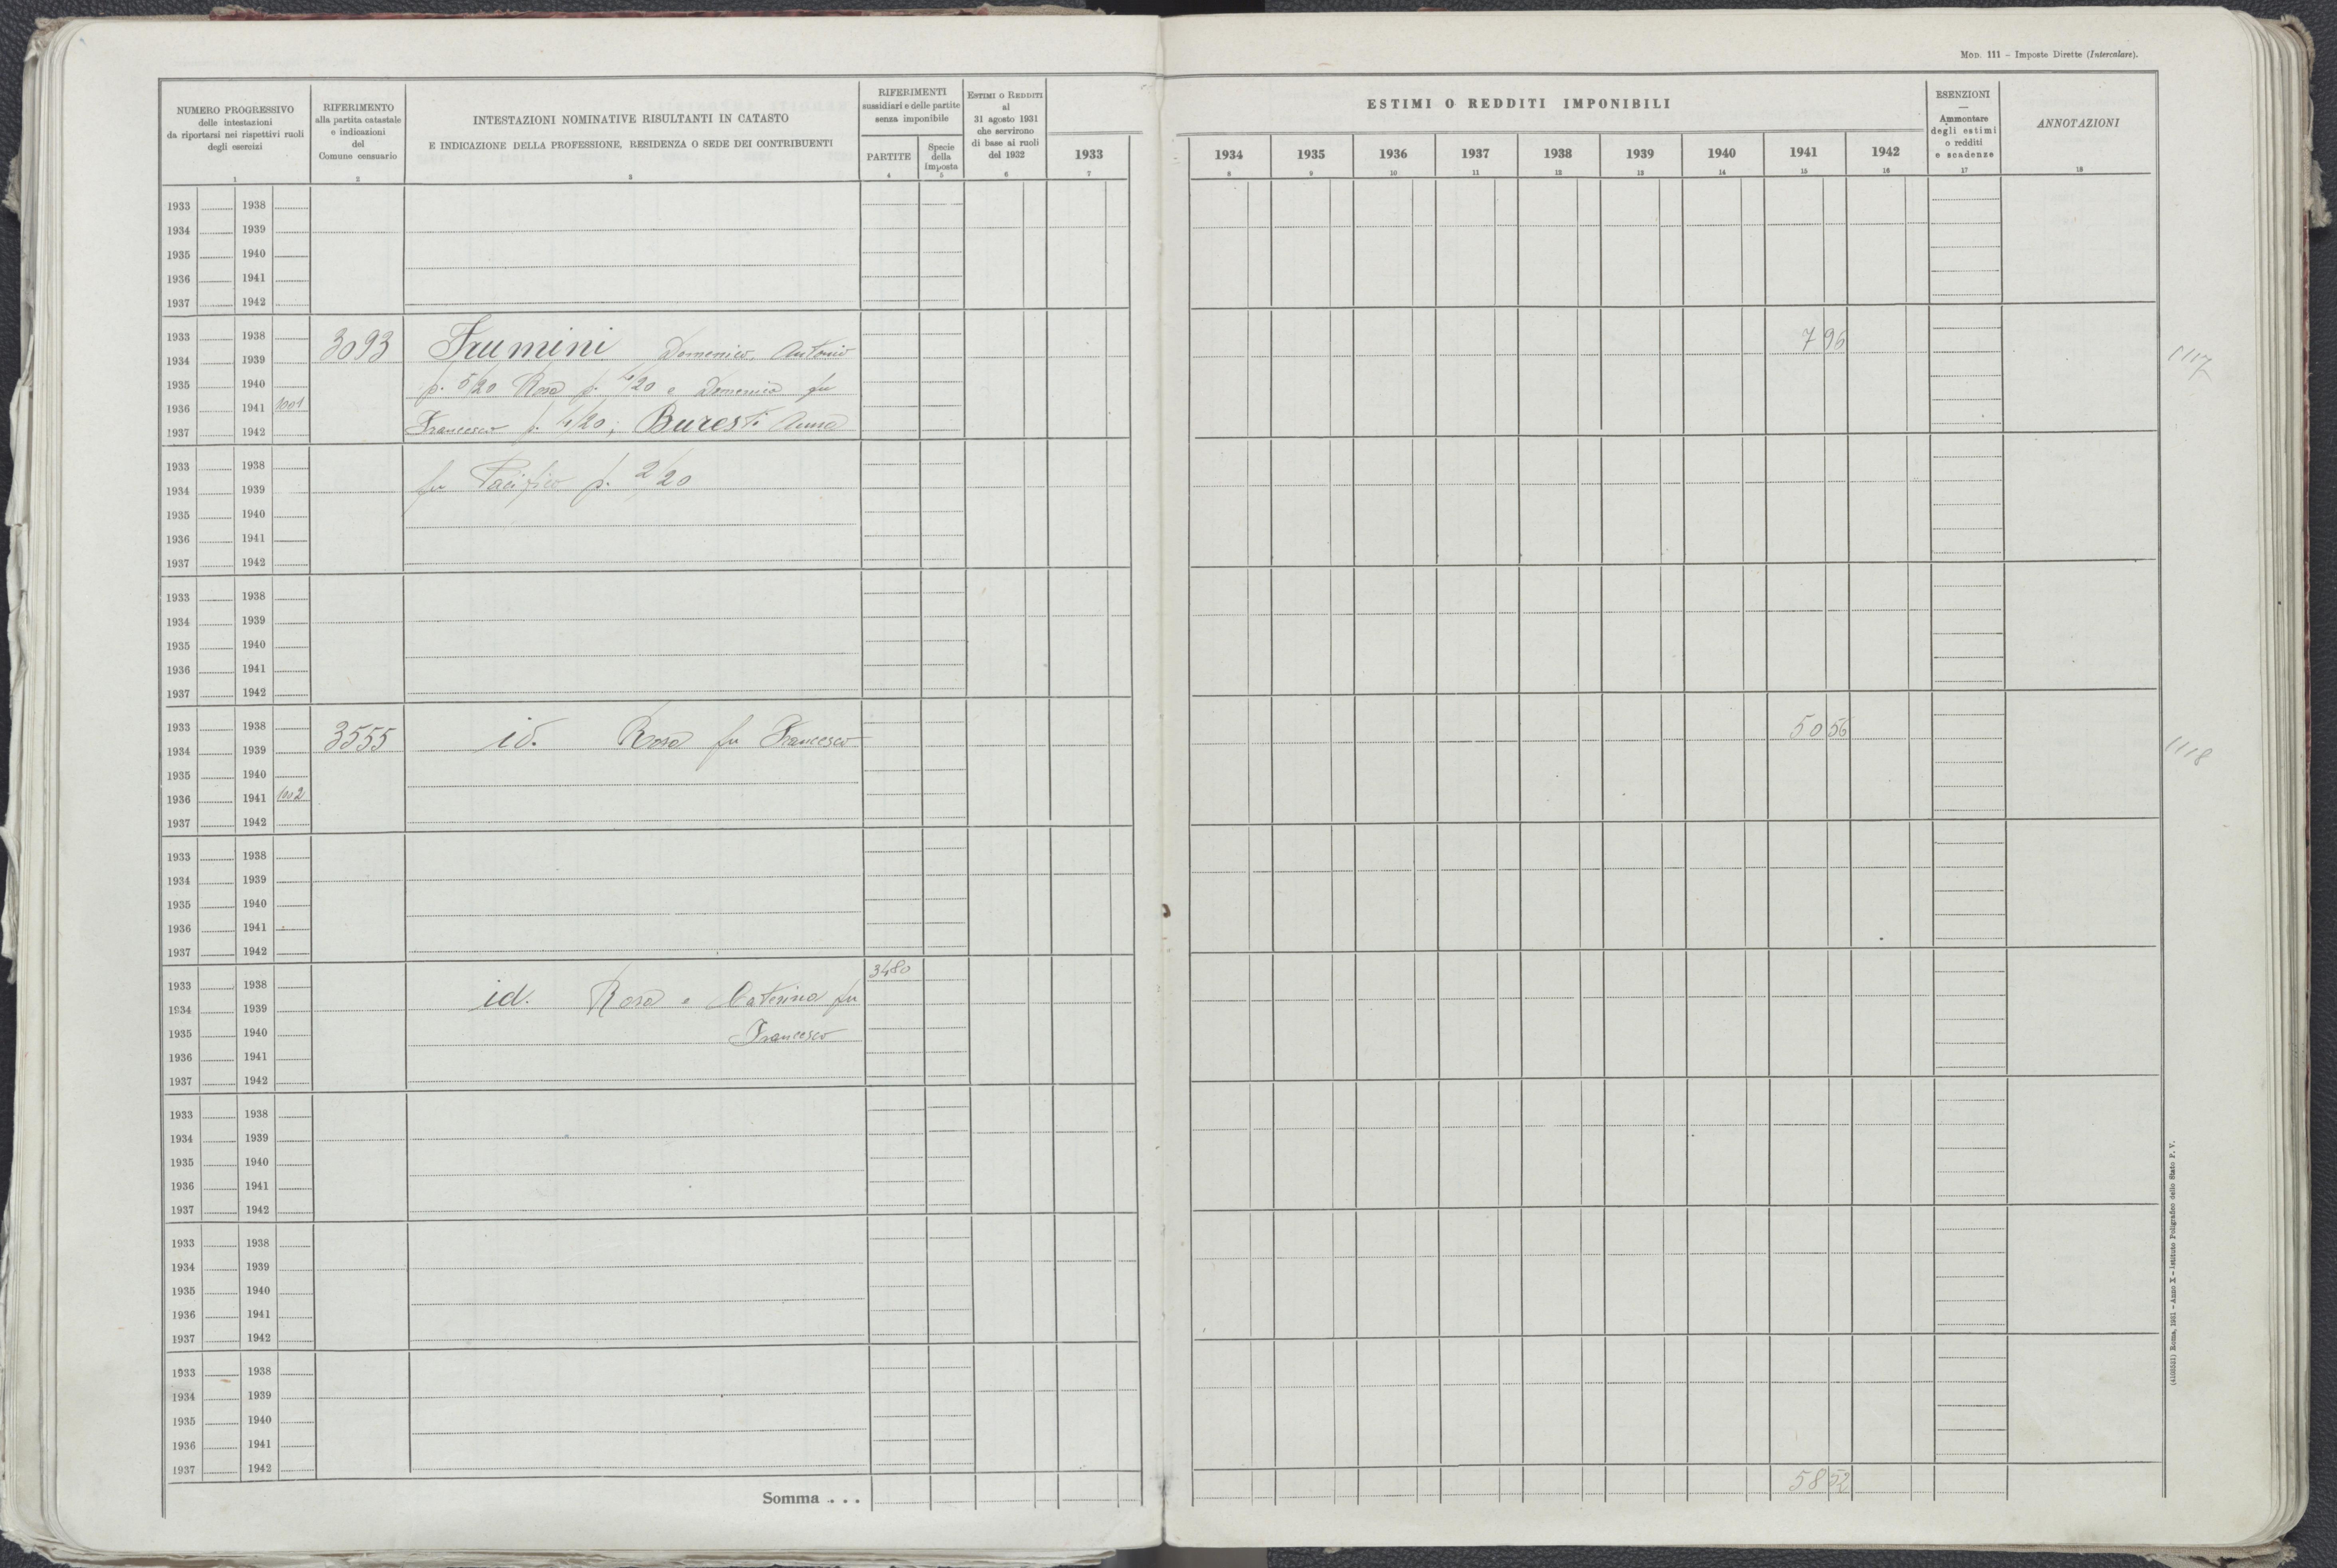 MOD. 111 – Imposte Dirette (Intercalare).
NUMERO PROGRESSIVO
delle intestazioni
da riportarsi nei rispettivi ruoli
degli esercizi
1
RIFERIMENTO
alla partita catastale
e indicazioni
del
Comune censuario
2
INTESTAZIONI NOMINATIVE RISULTANTI IN CATASTO
E INDICAZIONE DELLA PROFESSIONE, RESIDENZA O SEDE DEI CONTRIBUENTI
3
RIFERIMENTI
sussidiari e delle partite
senza imponibile
PARTITE
4
Specie
della
imposta
5
ESTIMI O REDDITI
al
31 agosto 1931
che servirono
di base ai ruoli
del 1932
6
1933
7
ESTIMI O REDDITI IMPONIBILI
1934 1935 1936 1937 1938 1939 1940 1941 1942
8 9 10 11 12 13 14 15 16
ESENZIONI
—
Ammontare
degli estimi
o redditi
e scadenze
17
ANNOTAZIONI
18
1933 1938
1934 1939
1935 1940
1936 1941
1937 1942
1933 1938
1934 1939 3093 Frumini Domenico, Antonio 796 1117
1935 1940 p. 5/20 Rosa p. 4/20 e Domenica fu
1936 1941 1001
1937 1942 Francesco p. 4/20; Buresti Anna
1933 1938
1934 1939 fu Pacifico p. 2/20
1935 1940
1936 1941
1937 1942
1933 1938
1934 1939
1935 1940
1936 1941
1937 1942
1933 1938
1934 1939 3555 id. Rosa fu Francesco 5056 1118
1935 1940
1936 1941 1002
1937 1942
1933 1938
1934 1939
1935 1940
1936 1941
1937 1942
3480
1933 1938
1934 1939 id. Rosa e Caterina fu
1935 1940 Francesco
1936 1941
1937 1942
1933 1938
1934 1939
1935 1940
1936 1941
1937 1942
1933 1938
1934 1939
1935 1940
1936 1941
1937 1942
1933 1938
1934 1939
1935 1940
1936 1941
1937 1942
Somma . . . 5852
(4105521) Roma, 1931 – Anno X – Istituto Poligrafico dello Stato P. V.